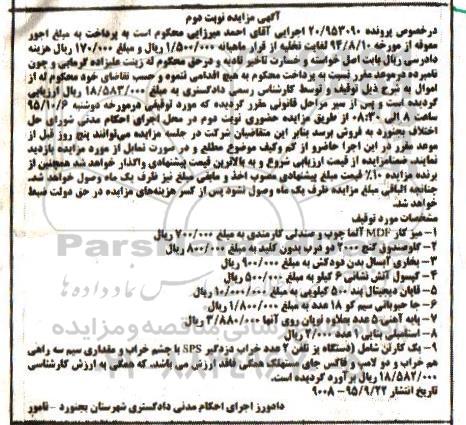 آگهی مزایده نوبت دوم
درخصوص پرونده ۲۰/۹۵۳۰۹۰ اجرایی آقای احمد میرزایی محکوم است به پرداخت به مبلغ اجور
معوقه از مورخه ۹۴/۸/۱۰ لغایت تخلیه از قرار ماهیانه ۱/۵۰۰/۰۰۰ ریال و مبلغ ۱۷۰/۰۰۰ ریال هزینه
دادرسی ریال بابت اصل خواسته و خسارت تاخیر تادیه و درحق محکوم له زینت علیزاده گرمابی و چون
نامبرده درموعد مقرر نسبت به پرداخت محکوم به هیچ اقدامی ننموده و حسب تقاضای خود محکوم له از
اموال به شرح ذیل توقیف و توسط کارشناس رسمی دادگستری به مبلغ ۱۸/۵۸۳/۰۰۰ ریال ارزیابی
گردیده است و پس از سیر مراحل قانونی مقرر گردیده که مورد توقیفی درمورخه دوشنبه ۹۵/۱۰/۶
ساعت ۸ الی ۰۸:۳۰ از طریق مزایده حضوری نوبت دوم در محل اجرای احکام مدنی شورای حل
اختلاف بجنورد به فروش برسد بنابر این متقاضیان شرکت در جلسه مزایده می‌توانند پنج روز قبل از
موعد مقرر در این اجرا حاضر و از کم وکیف موضوع مطلع و در صورت تمایل از مورد مزایده بازدید
نمایند. ضمنا مزایده از قیمت ارزیابی شروع و به بالاترین قیمت پیشنهادی واگذار خواهد شد همچنین از
برنده مزایده ۱۰٪ قیمت مبلغ پیشنهادی مصوب اخذ و مابقی مبلغ نیز ظرف یک ماه وصول خواهد شد.
چنانچه الباقی مبلغ مزایده ظرف یک ماه وصول نشود پس از کسر هزینه‌های مزایده در حق دولت ضبط
خواهد شد.
مشخصات مورد توقیف
۱- میز کار MDF آلفا چوب و صندلی کارمندی به مبلغ ۷۰۰/۰۰۰ ریال
۲- گاوصندوق گنج ۲۰۰۰ دو درب بدون کلید به مبلغ ۸۰۰/۰۰۰ ریال
۳- بخاری آبسال بدن دودکش به مبلغ ۹۰۰/۰۰۰ ریال
۴- کپسول آتش نشانی ۶ کیلو به مبلغ ۵۰۰/۰۰۰ ریال
۵- قاپان دیجیتال پند ۵۰۰ کیلویی به مبلغ ۱۰/۰۰۰/۰۰۰ ریال
۶- جا حبوباتی سیم کو ۱۸ عدد به مبلغ ۱/۸۰۰/۰۰۰ ریال
۷- پایه آهنی ۵ عدد بعلاوه نوپان روی آنها ۲/۸۸۰/۰۰۰ ریال
۸- استعلامی پنل ۱ عدد ۲/۰۰۰ ریال
۹- یک کارتن شامل (دستگاه پز تلفن ۷ عدد خراب دزدگیر SPS با چشم خراب و مقداری سیم سه راهی
هم خراب و دو لامپ و فاکس جای مستهلک همگی فاقد ارزش می باشد. که همگی به ارزش کارشناسی
۱۸/۵۸۲/۰۰۰ ریال برآورد گردیده است.
تاریخ انتشار ۹۵/۹/۲۲- ۹۰۰۸
دادورز اجرای احکام مدنی دادگستری شهرستان بجنورد - نامور